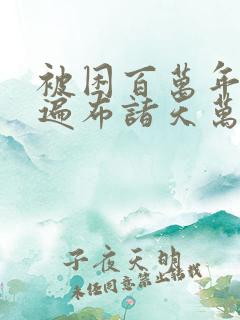 被困百萬年
遍布諸天萬
子夜天明
未經同意禁止轉載